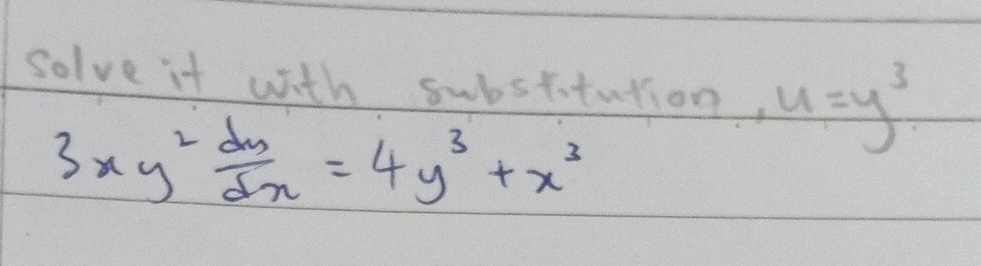 solve it with substitution, u=y³
3xy² dy/dx = 4y³ + x³